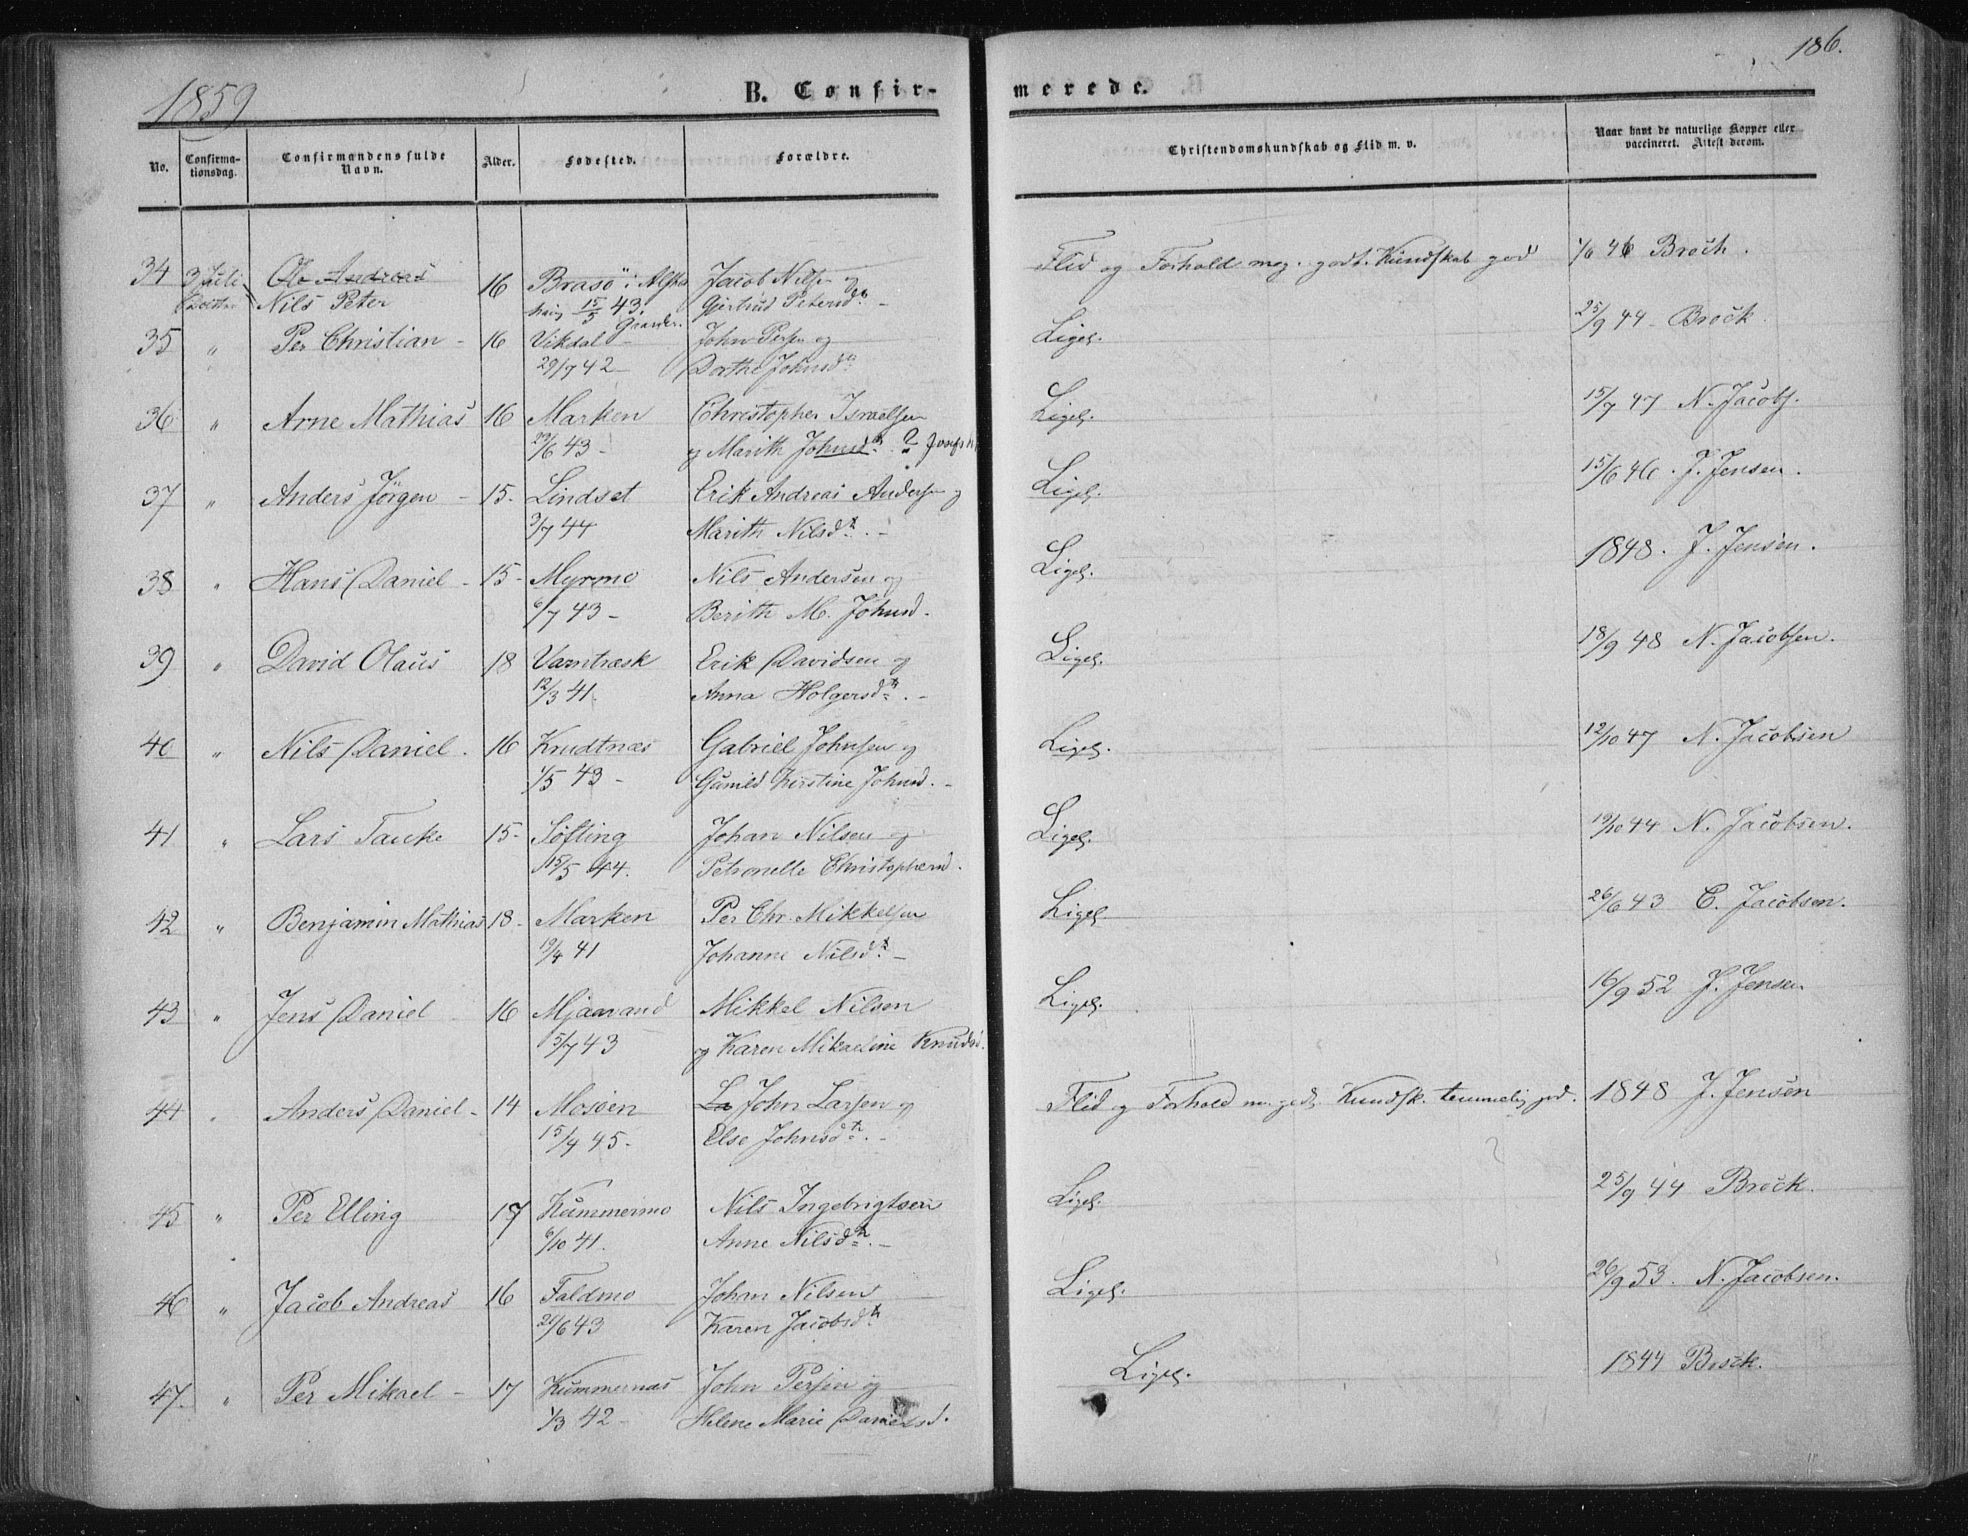 186.
1859
B. Confirmerede.
No.
Confirmationsdag.
Confirmandens fulde Navn.
Alder.
Fødested.
Forældre.
Christendomskundskab og Flid m. v.
Naar havt de naturlige Kopper eller vaccineret. Attest derom.
34 3 Juli Ole Andreas 16 Brasö i Jacob Nilsen og Flid og Forhold meg. godt. Kundskab god 46 Broch.
Nils Peter 15/5 43. Gjertrud Petersdtr
35 " Per Christian - 16 Vikdal - John Persen og Ligel. 25/9 44 - Brock.
29/7 42 - Dorthe Johnsdtr
36 " Arne Mathias 16 Marken Christopher Israelsen Ligel. 15/7 47 N. Jacobs.
29/6 43 - og Marith Johnsdtr ?
37 " Anders Jörgen - 15- Lindset Erik Andreas Andersen og Ligel. 15/6 46. J. Jensen.
3/7 44 Marith Nilsdtr -
38 " Hans Daniel - 15- Myrmo Nils Andersen og Ligel. 1848. J. Jensen.
6/7 43 - Berith M. Johnsd.
39 " David Olaus 18 Varntræsk Erik Davidsen og Ligel. 18/9 48 N. Jacobsen.
12/3 41. Anna Holgersdtr -
40 " Nils Daniel. 16 Krudtnæs Gabriel Johnsen og Ligel. 12/10 47 N. Jacobsen
1/5 43 - Gunild Kirstine Johnsd. -
41 " Lars Tauke 15- Søfting Johan Nilsen og Ligel. 19/10 44 N. Jacobsen.
15/5 44. Petronelle Christophersd.
42 " Benjamin Mathias 18- Marken Per Chr. Mikkelsen Ligel 26/6 43 C. Jacobsen.
19/4 41 Johanne Nilsdtr -
43 " Jens Daniel 16 Mjaavand Mikkel Nilsen Ligel. 16/9 52 J. Jensen
5/7 43 og Karen Mikaeline Knudsd.
44 " Anders Daniel - 14 Mosöen John Larsen og Flid og Forhold m. godt, Kundsk. temmelig god. 1848 J. Jensen
45 - Else Johnsdtr -
45 " Per Elling 17 Kummermo Nils Ingebrigtsen Ligel. 25/9 44 Brock.
6/10 41. Anne Nilsdtr -
46 " Jacob Andreas 16 Faldmo Johan Nilsen Ligel. 26/9 53. N. Jacobsen.
43 Karen Jacobsdtr
47. " Per Mikael - 17 Kummernæs John Persen og Ligel. 1844 Brock.
1/3 42 - Helene Marie Danielsd.